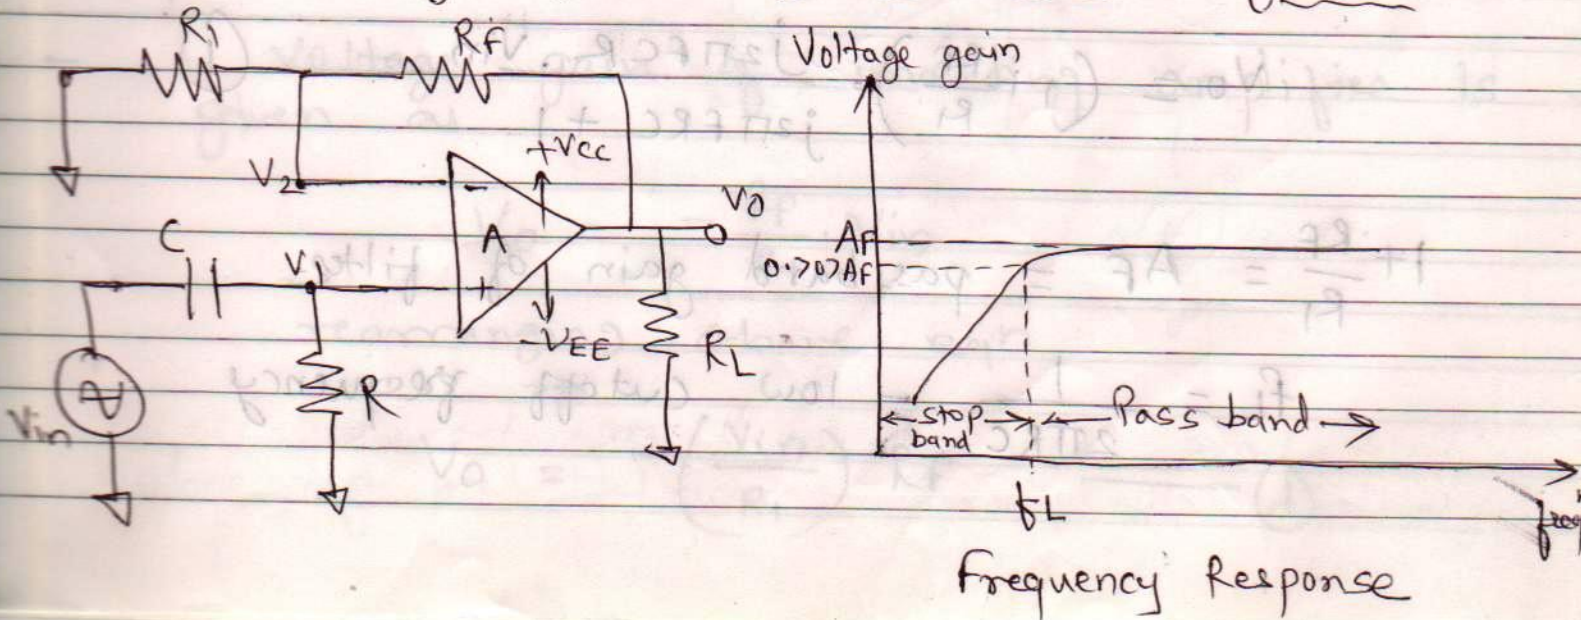 R1
RF
V2
+VCC
A
-
+
-VEE
Vo
C
V1
R
RL
Vin
Voltage gain
AF
0.707AF
stop
band
Pass band
fL
freq
Frequency Response